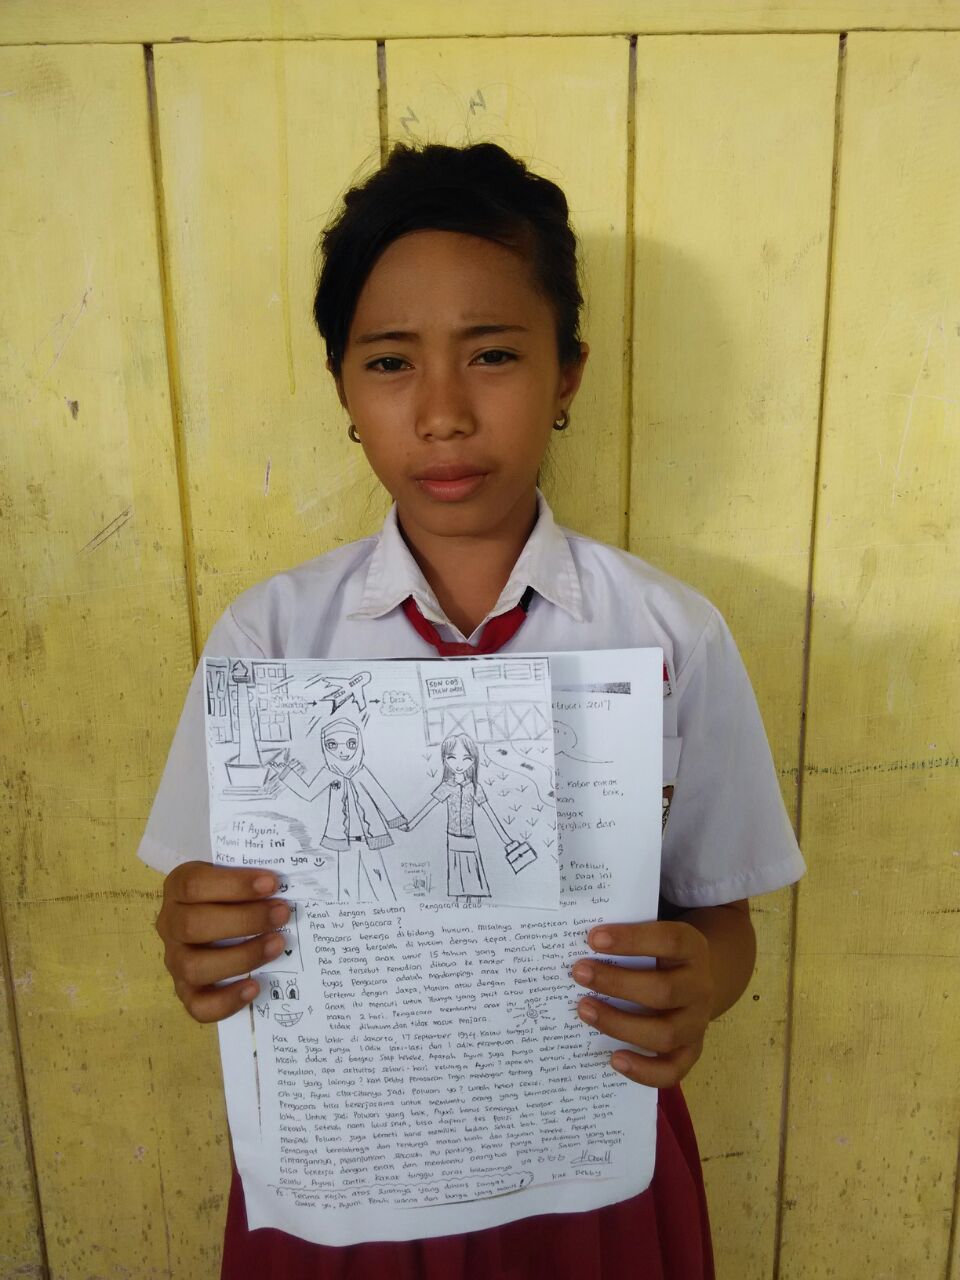 Jakarta
Desa
SDN 003
Hi Ayuni,
Mulai Hari ini
Kita berteman yaa
2017
Kabar kakak
baik,
kan
banyak
Penghias dan
Pratiwi,
k saat ini
biasa di-
Kenal dengan sebutan Pengacara atau Ayuni tahu
Apa itu Pengacara?
Pengacara bekerja di bidang hukum, misalnya memastikan bahwa
Orang yang bersalah di hukum dengan tepat. Contohnya seperti
Ada seorang anak umur 15 tahun yang mencuri beras di
Anak tersebut kemudian dibawa ke kantor Polisi. Nah, salah
tugas Pengacara adalah mendampingi anak itu bertemu dengan
bertemu dengan Jaksa, Hakim atau dengan Pemilik toko
anak itu mencuri untuk Ibunya yang sakit atau keluarganya
makan 2 hari. Pengacara membantu anak itu agar sebisa mungkin
tidak dihukum dan tidak masuk penjara.
Kak Debby lahir di Jakarta, 17 September 1994. Kalau tanggal lahir Ayuni
Kakak Juga punya 1 adik laki-laki dan 1 adik perempuan. Adik Perempuan kak
Masih duduk di bangku SMP hehehe. Apakah Ayuni Juga punya adik/kakak?
Kemudian, apa aktivitas sehari-hari keluarga Ayuni? apakah bertani, berdagang
atau yang lainnya? Kak Debby penasaran ingin mendengar tentang Ayuni dan keluarga
Oh ya, Ayuni cita-citanya Jadi Polwan ya? Wahh hebat sekali. Nanti Polisi dan
Pengacara bisa bekerjasama untuk membantu orang yang bermasalah dengan hukum
lohh.. Untuk Jadi Polwan yang baik, Ayuni harus semangat belajar dan rajin ber-
sekolah. Setelah nanti lulus SMA, bisa daftar tes Polisi dan lulus dengan baik
Menjadi Polwan Juga berarti harus memiliki badan sehat loh. Jadi Ayuni Juga
Semangat berolahraga dan tentunya makan buah dan sayuran hehehe. Apapun
rintangannya, melanjutkan sekolah itu penting. Kalau punya pendidikan yang baik,
bisa bekerja dengan enak dan membantu orangtua pastinya. Salam Semangat
Selalu Ayuni cantik. Kakak tunggu surat balasannya ya
Kak Debby
Ps. Terima kasih atas Suratnya yang dihias sangat
cantik ya, Ayuni. Penuh warna dan bunga yang manis!